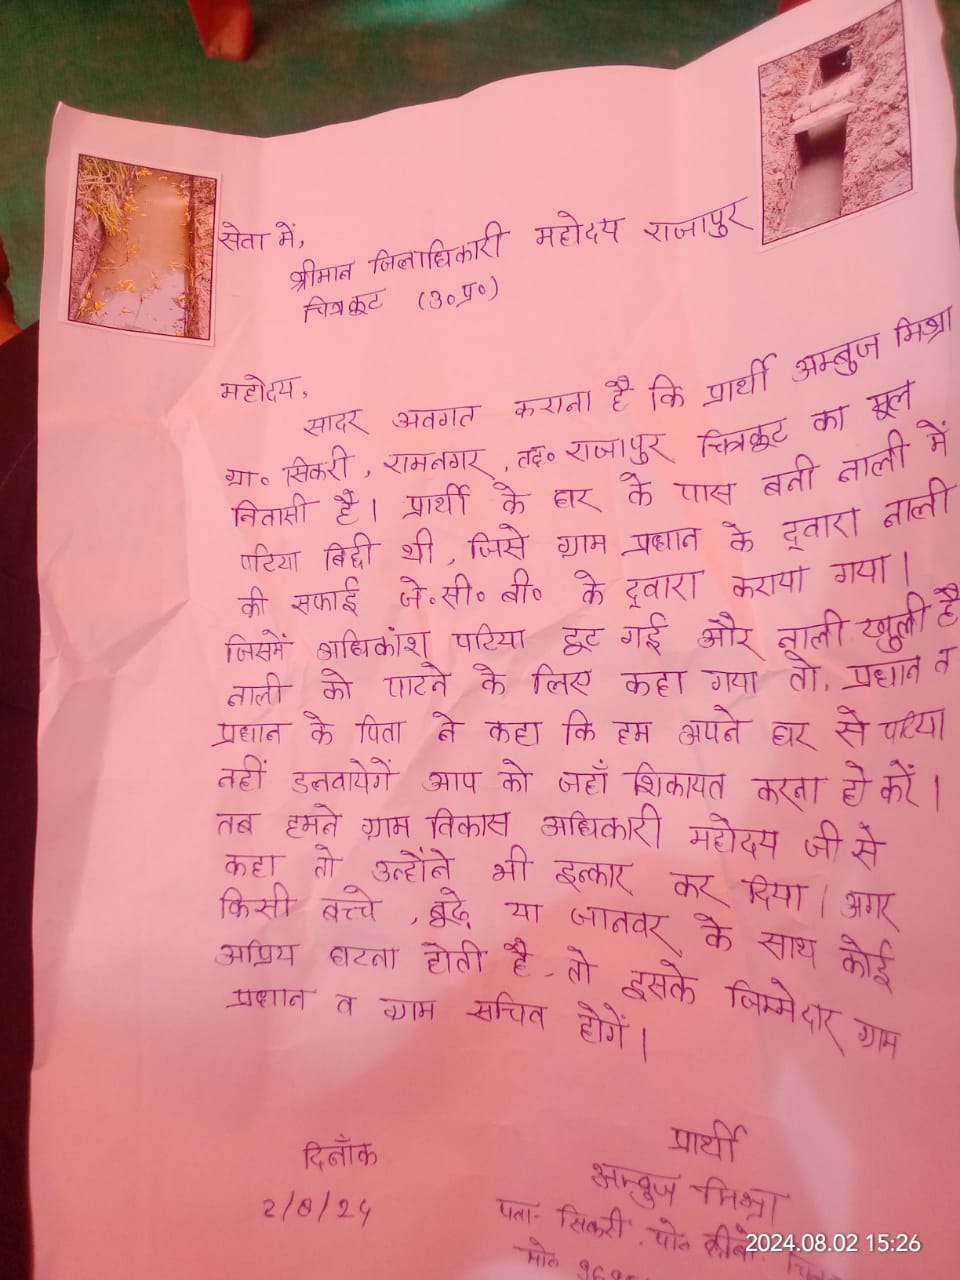 सेवा में,
श्रीमान जिलाधिकारी महोदय राजापुर
चित्रकूट (उ०प्र०)
महोदय,
सादर अवगत कराना है कि प्रार्थी अम्बुज मिश्रा
ग्रा० सिकरी, रामनगर, तह० राजापुर चित्रकूट का मूल
निवासी है। प्रार्थी के घर के पास बनी नाली में
पटिया बिछी थी, जिसे ग्राम प्रधान के द्वारा नाली
की सफाई जे०सी०बी० के द्वारा कराया गया।
जिसमें अधिकांश पटिया टूट गई और नाली खुली है
नाली को पाटने के लिए कहा गया तो, प्रधान व
प्रधान के पिता ने कहा कि हम अपने घर से पटिया
नहीं डलवायेगें आप को जहाँ शिकायत करना हो करें।
तब हमने ग्राम विकास अधिकारी महोदय जी से
कहा तो उन्होंने भी इन्कार कर दिया। अगर
किसी बच्चे, बूढ़े या जानवर के साथ कोई
अप्रिय घटना होती है, तो इसके जिम्मेदार ग्राम
प्रधान व ग्राम सचिव होगें।
प्रार्थी
दिनाँक
अम्बुज मिश्रा
2/8/24
पता- सिकरी, पो०
मो०
2024.08.02 15:26